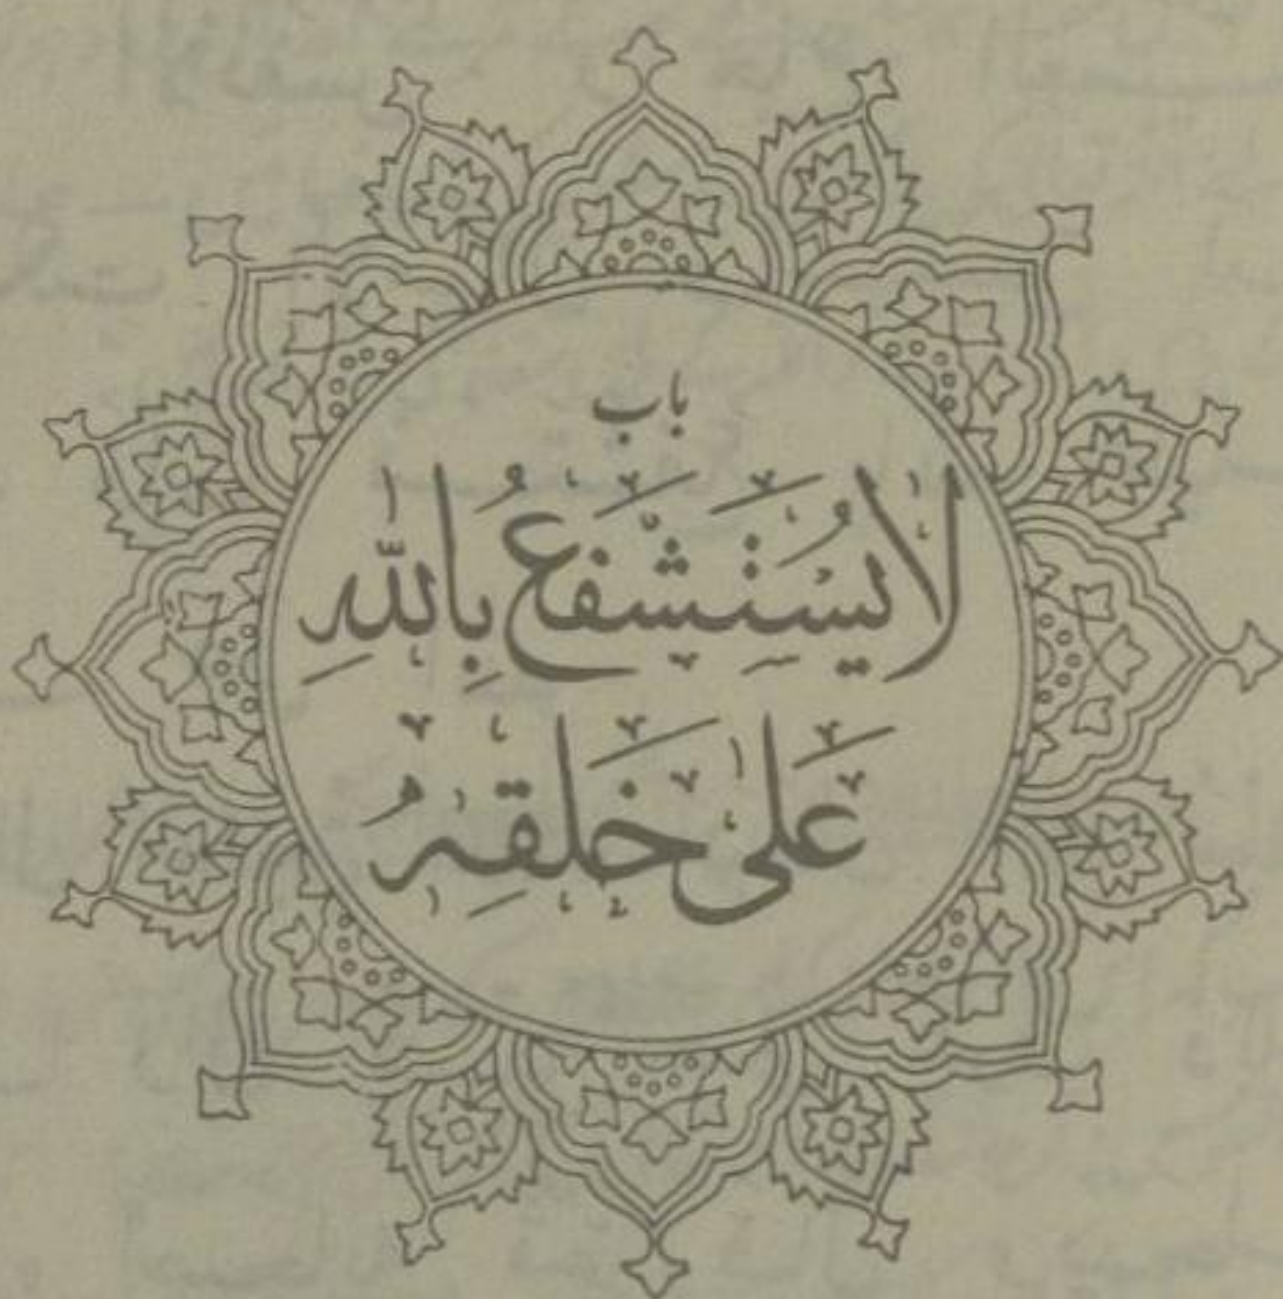 باب
لا يُستشفعُ بِاللّٰهِ
عَلى خَلقِهِ